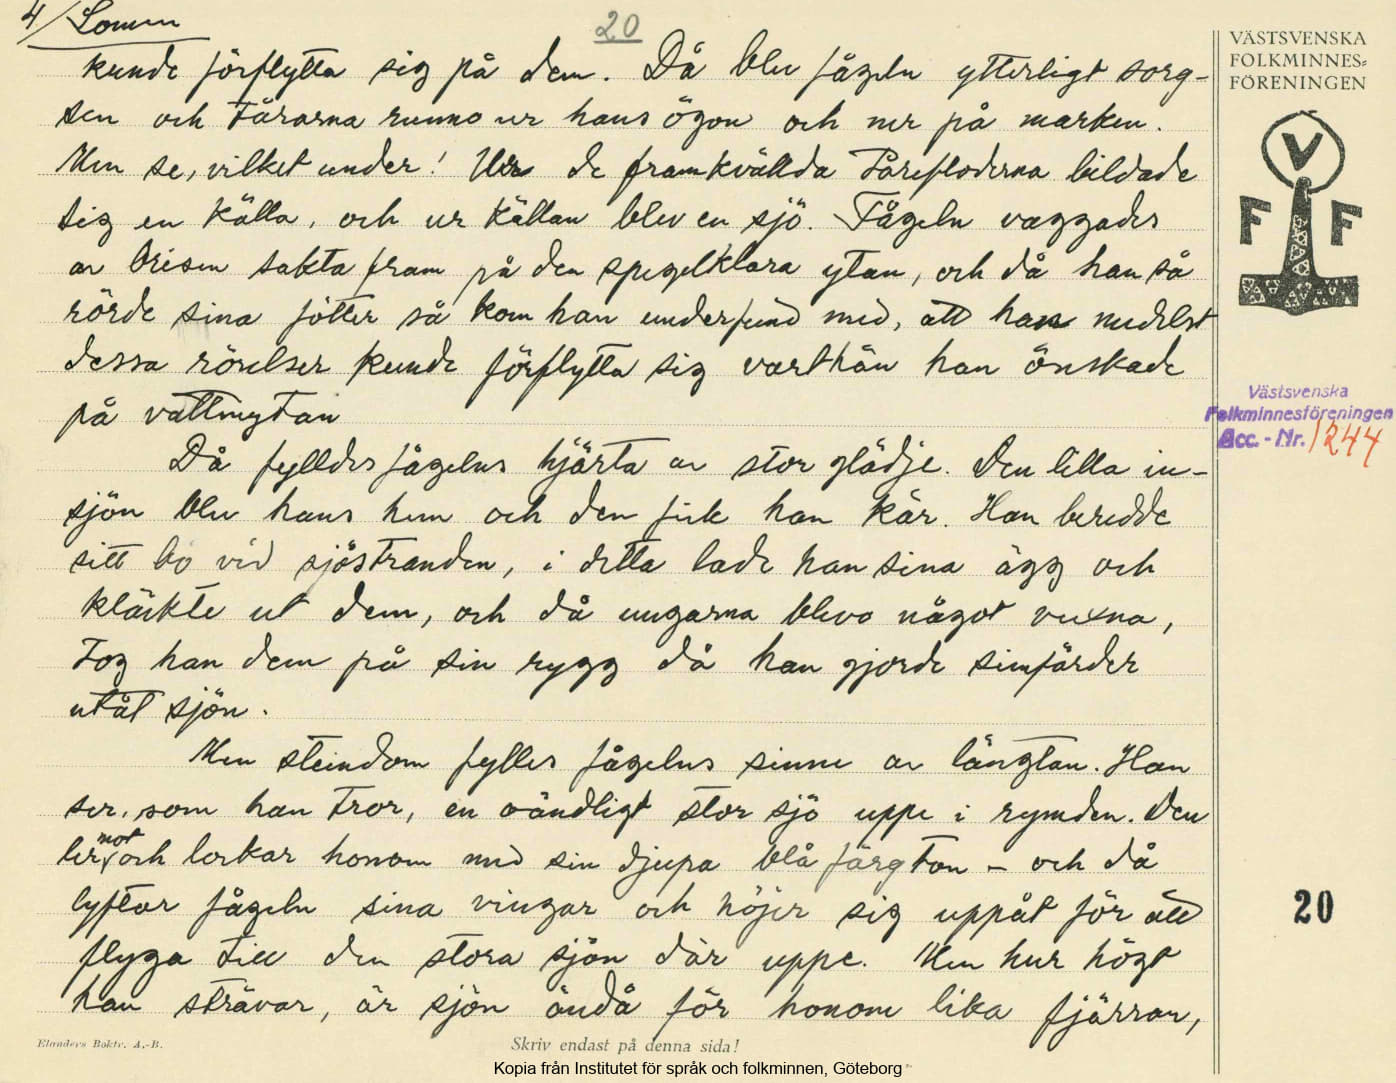 4/ Lomm
20
kunde förflytta sig på dem. Då blev fågeln ytterligt sorg-
sen och tårarna runno ur hans ögon och ner på marken.
Men se, vilket under! Ur de framkvällda tårefloderna bildade
sig en källa, och ur källan blev en sjö. Fågeln vaggades
av brisen sakta fram på den spegelklara ytan, och då han så
rörde sina fötter så kom han underfund med, att han medelst
dessa rörelser kunde förflytta sig varthän han önskade
på vattnytan
Då fylldes fågelns hjärta av stor glädje. Den lilla in-
sjön blev hans hem och den fick han kär. Han beredde
sitt bo vid sjöstranden, i detta lade han sina ägg och
kläckte ut dem, och då ungarna blevo något vuxna,
tog han dem på sin rygg då han gjorde simfärder
utåt sjön.
Men steindom fylles fågelns sinne av längtan. Han
ser, som han tror, en oändligt stor sjö uppe i rymden. Den
ler mot och lockar honom med sin djupa blå färgton – och då
lyftar fågeln sina vingar och höjer sig uppåt för att
flyga till den stora sjön där uppe. Men hur högt
han strävar, är sjön ändå för honom lika fjärran,
VÄSTSVENSKA
FOLKMINNES=
FÖRENINGEN
V
F F
Västsvenska
Folkminnesföreningen
Acc.-Nr. 1244
20
Elanders Boktr. A.-B.
Skriv endast på denna sida!
Kopia från Institutet för språk och folkminnen, Göteborg